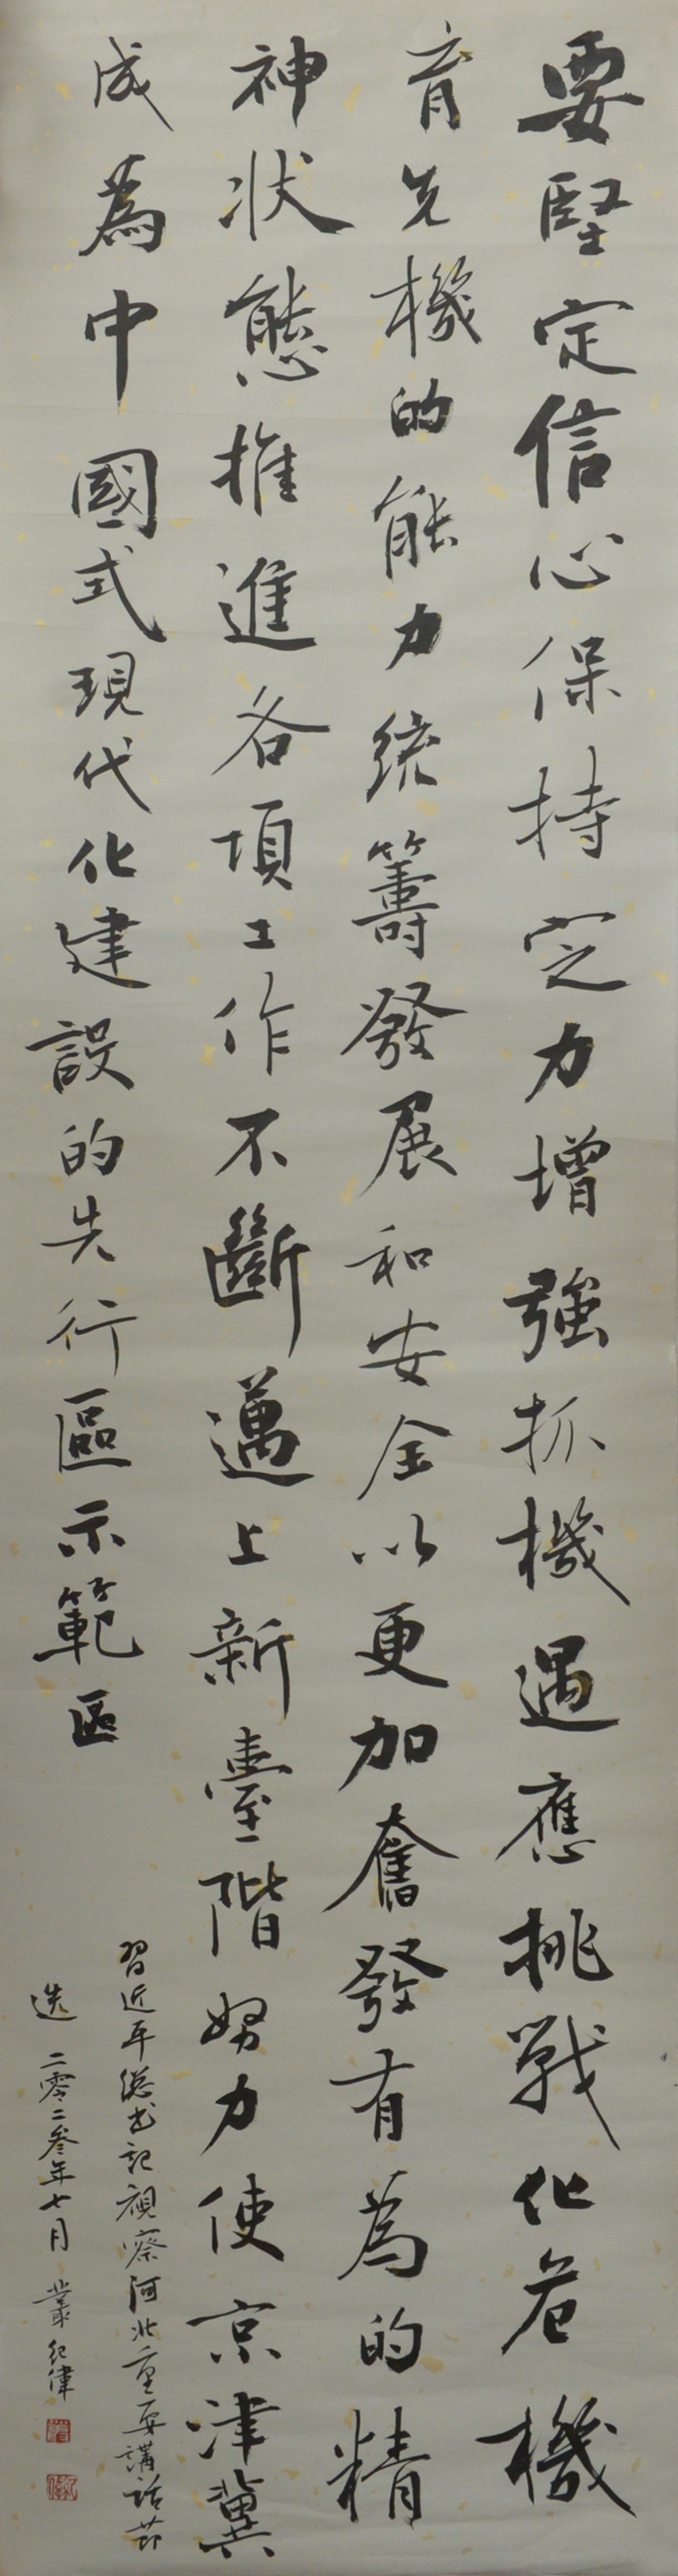 要堅定信心保持定力增強抓機遇應挑戰化危機
育先機的能力統籌發展和安全以更加奮發有為的精
神狀態推進各項工作不斷邁上新臺階努力使京津冀
成為中國式現代化建設的先行區示範區
習近平總书記視察河北重要講話节
选 二零二叁年七月 叢紀偉